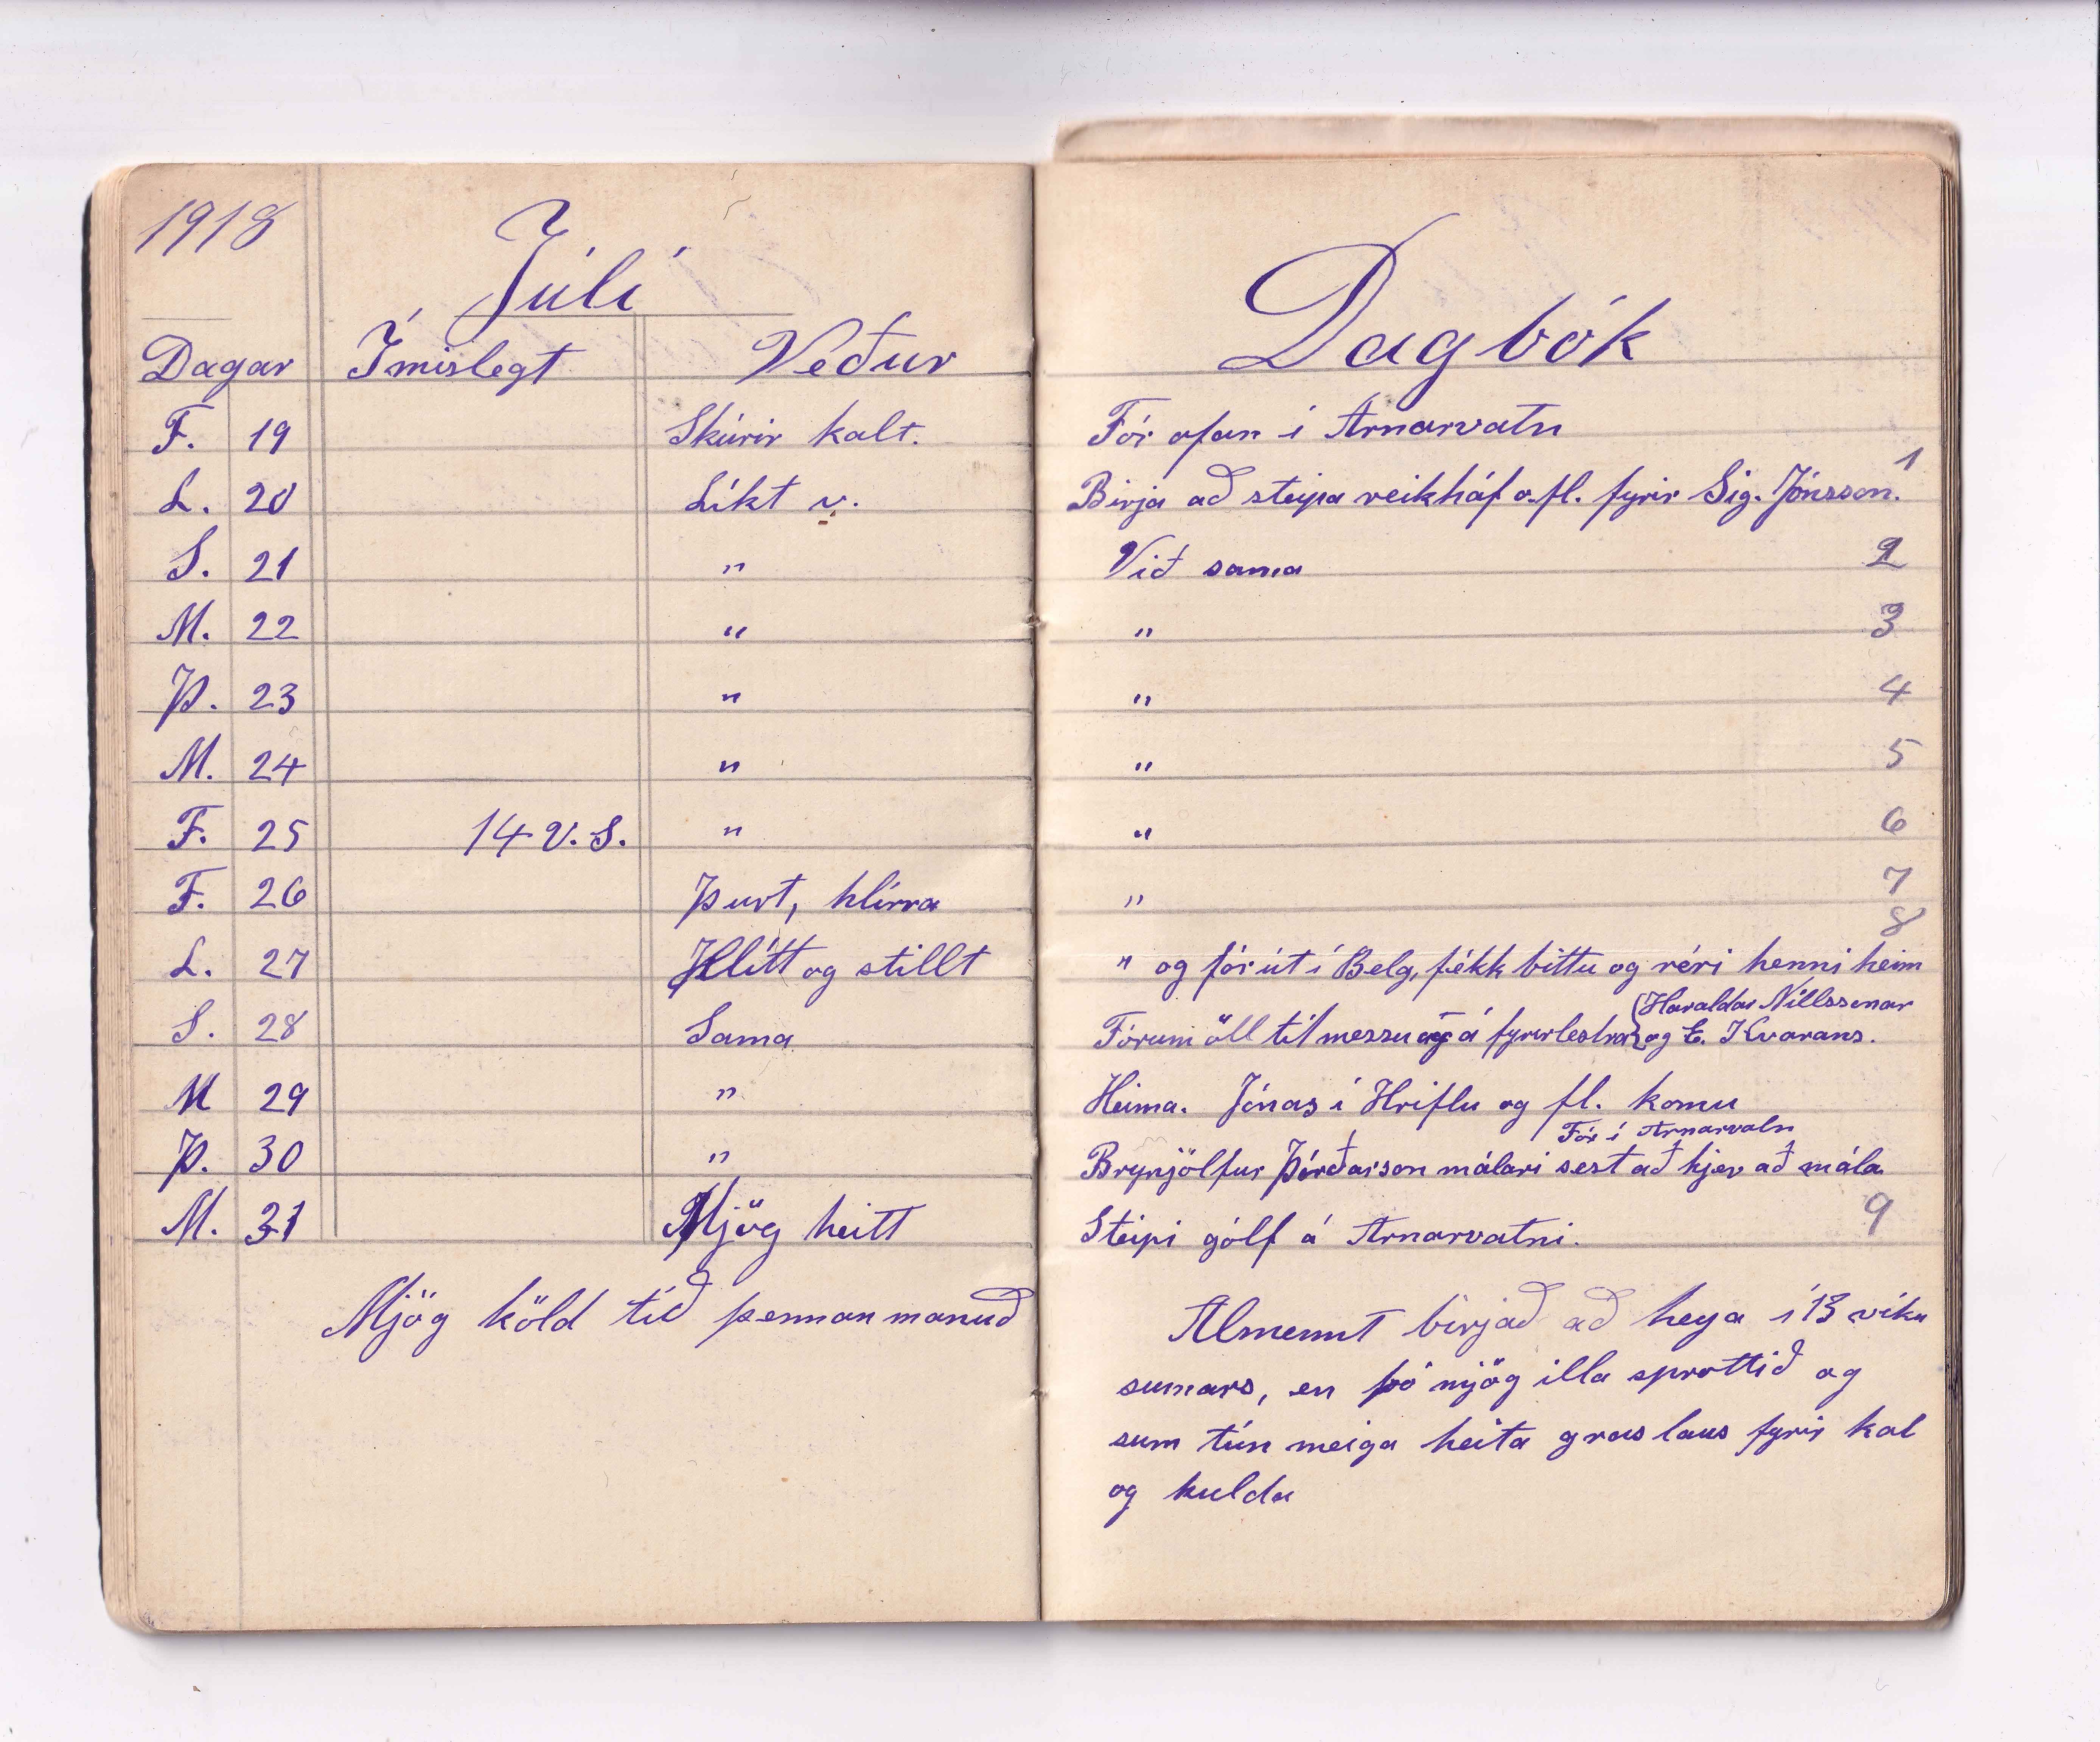 1918
Júlí
Dagar Ímislegt Veður
F. 19 Skúrir kalt.
L. 20 Líkt v.
S. 21 "
M. 22 "
Þ. 23 "
M. 24 "
F. 25 14 V. S. "
F. 26 Þurt, hlírra
L. 27 Hlítt og stillt
S. 28 Sama
M 29 "
Þ. 30 "
M. 31 Mjög heitt
Mjög köld tíð þennan manuð
Dagbók
Fór ofan í Arnarvatn
Birja að steipa reikháf o.fl. fyrir Sig. Jónsson. 1
Við sama 2
" 3
" 4
" 5
" 6
" 7
8
" og fór út í Belg, fékk bittu og réri henni heim
Haraldar Níllssonar
Fórum öll til messu og á fyrirlestra og E. Kvarans.
Heima. Jónas í Hriflu og fl. komu
Fór í Arnarvatn
Brynjólfur Þórðarson málari sest að hjer að mála
Steipi gólf á Arnarvatni. 9
Almennt birjað að heya í 13 viku
sumars, en þó mjög illa sprottið og
sum tún meiga heita graslaus fyrir kal
og kulda